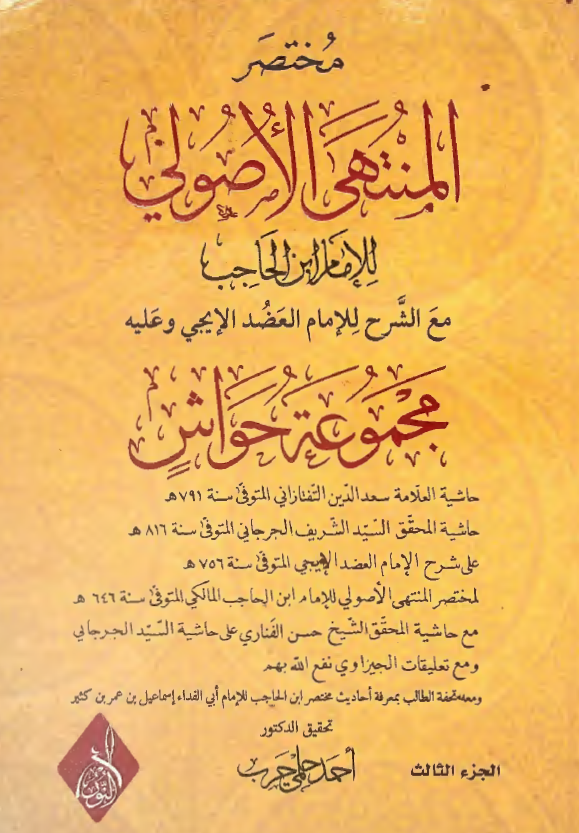 مُختصَر
المُنْتَهَى الأُصُولي
لِلإمَام ابن الحَاجِب
معَ الشَّرح لِلإمام العَضُد الإيجي وعَليه
مَجْمُوعَة حَوَاشٍ
حاشية العلّامة سعد الدّين التّفتازاني المتوفّى سنة ٧٩١هـ
حاشية المحقّق السّيّد الشّريف الجرجاني المتوفّى سنة ٨١٦ هـ
على شرح الإمام العضد الإيجي المتوفّى سنة ٧٥٦ هـ
لمختصر المنتهى الأصولي للإمام ابن الحاجب المالكي المتوفّى سنة ٦٤٦ هـ
مع حاشية المحقّق الشّيخ حسن الفَناري على حاشية السّيّد الجرجاني
ومع تعليقات الجيزاوي نفع الله بهم
ومعه تحفة الطالب بمعرفة أحاديث مختصر ابن الحاجب للإمام أبي الفداء إسماعيل بن عمر بن كثير
تحقيق الدكتور
أحمد حلمي حرب
الجزء الثالث